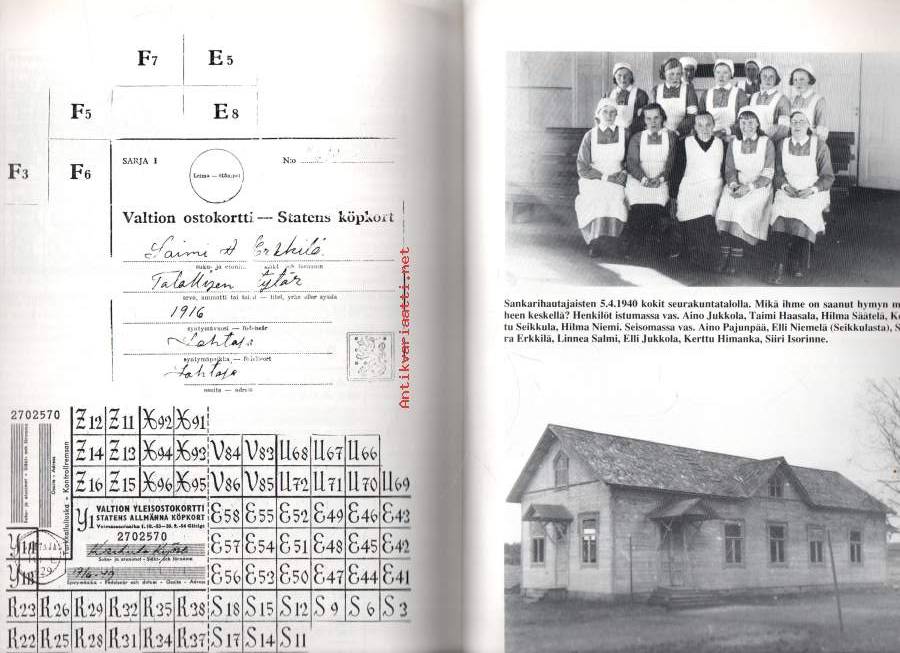 F7 E5
F5 E8
F3 F6
SARJA I N:o
Leima — stämpel
Valtion ostokortti — Statens köpkort
Saimi A Erkkilä
suku- ja etunimi
Talollisen tytär
arvo, ammatti tai — titel, yrke eller syssla
1916
syntymävuosi — födelseår
Lohtaja
syntymäpaikka — födelseort
Lohtaja
osoite — adress
Antikvariaatti.net
2702570
Z12 Z11 X92 X91
Z14 Z13 X94 X93 V84 V83 U68 U67 U66
Z16 Z15 X96 X95 V86 V85 U72 U71 U70 U69
Y1 VALTION YLEISOSTOKORTTI
STATENS ALLMÄNNA KÖPKORT
2702570
E58 E55 E52 E49 E46 E43
E57 E54 E51 E48 E45 E42
E56 E53 E50 E47 E44 E41
R23 R26 R29 R32 R35 R38 S18 S15 S12 S9 S6 S3
R22 R25 R28 R31 R34 R37 S17 S14 S11
Sankarihautajaisten 5.4.1940 kokit seurakuntatalolla. Mikä ihme on saanut hymyn m
heen keskellä? Henkilöt istumassa vas. Aino Jukkola, Taimi Haasala, Hilma Säätelä, Ke
tu Seikkula, Hilma Niemi. Seisomassa vas. Aino Pajunpää, Elli Niemelä (Seikkulasta), S
ra Erkkilä, Linnea Salmi, Elli Jukkola, Kerttu Himanka, Siiri Isorinne.